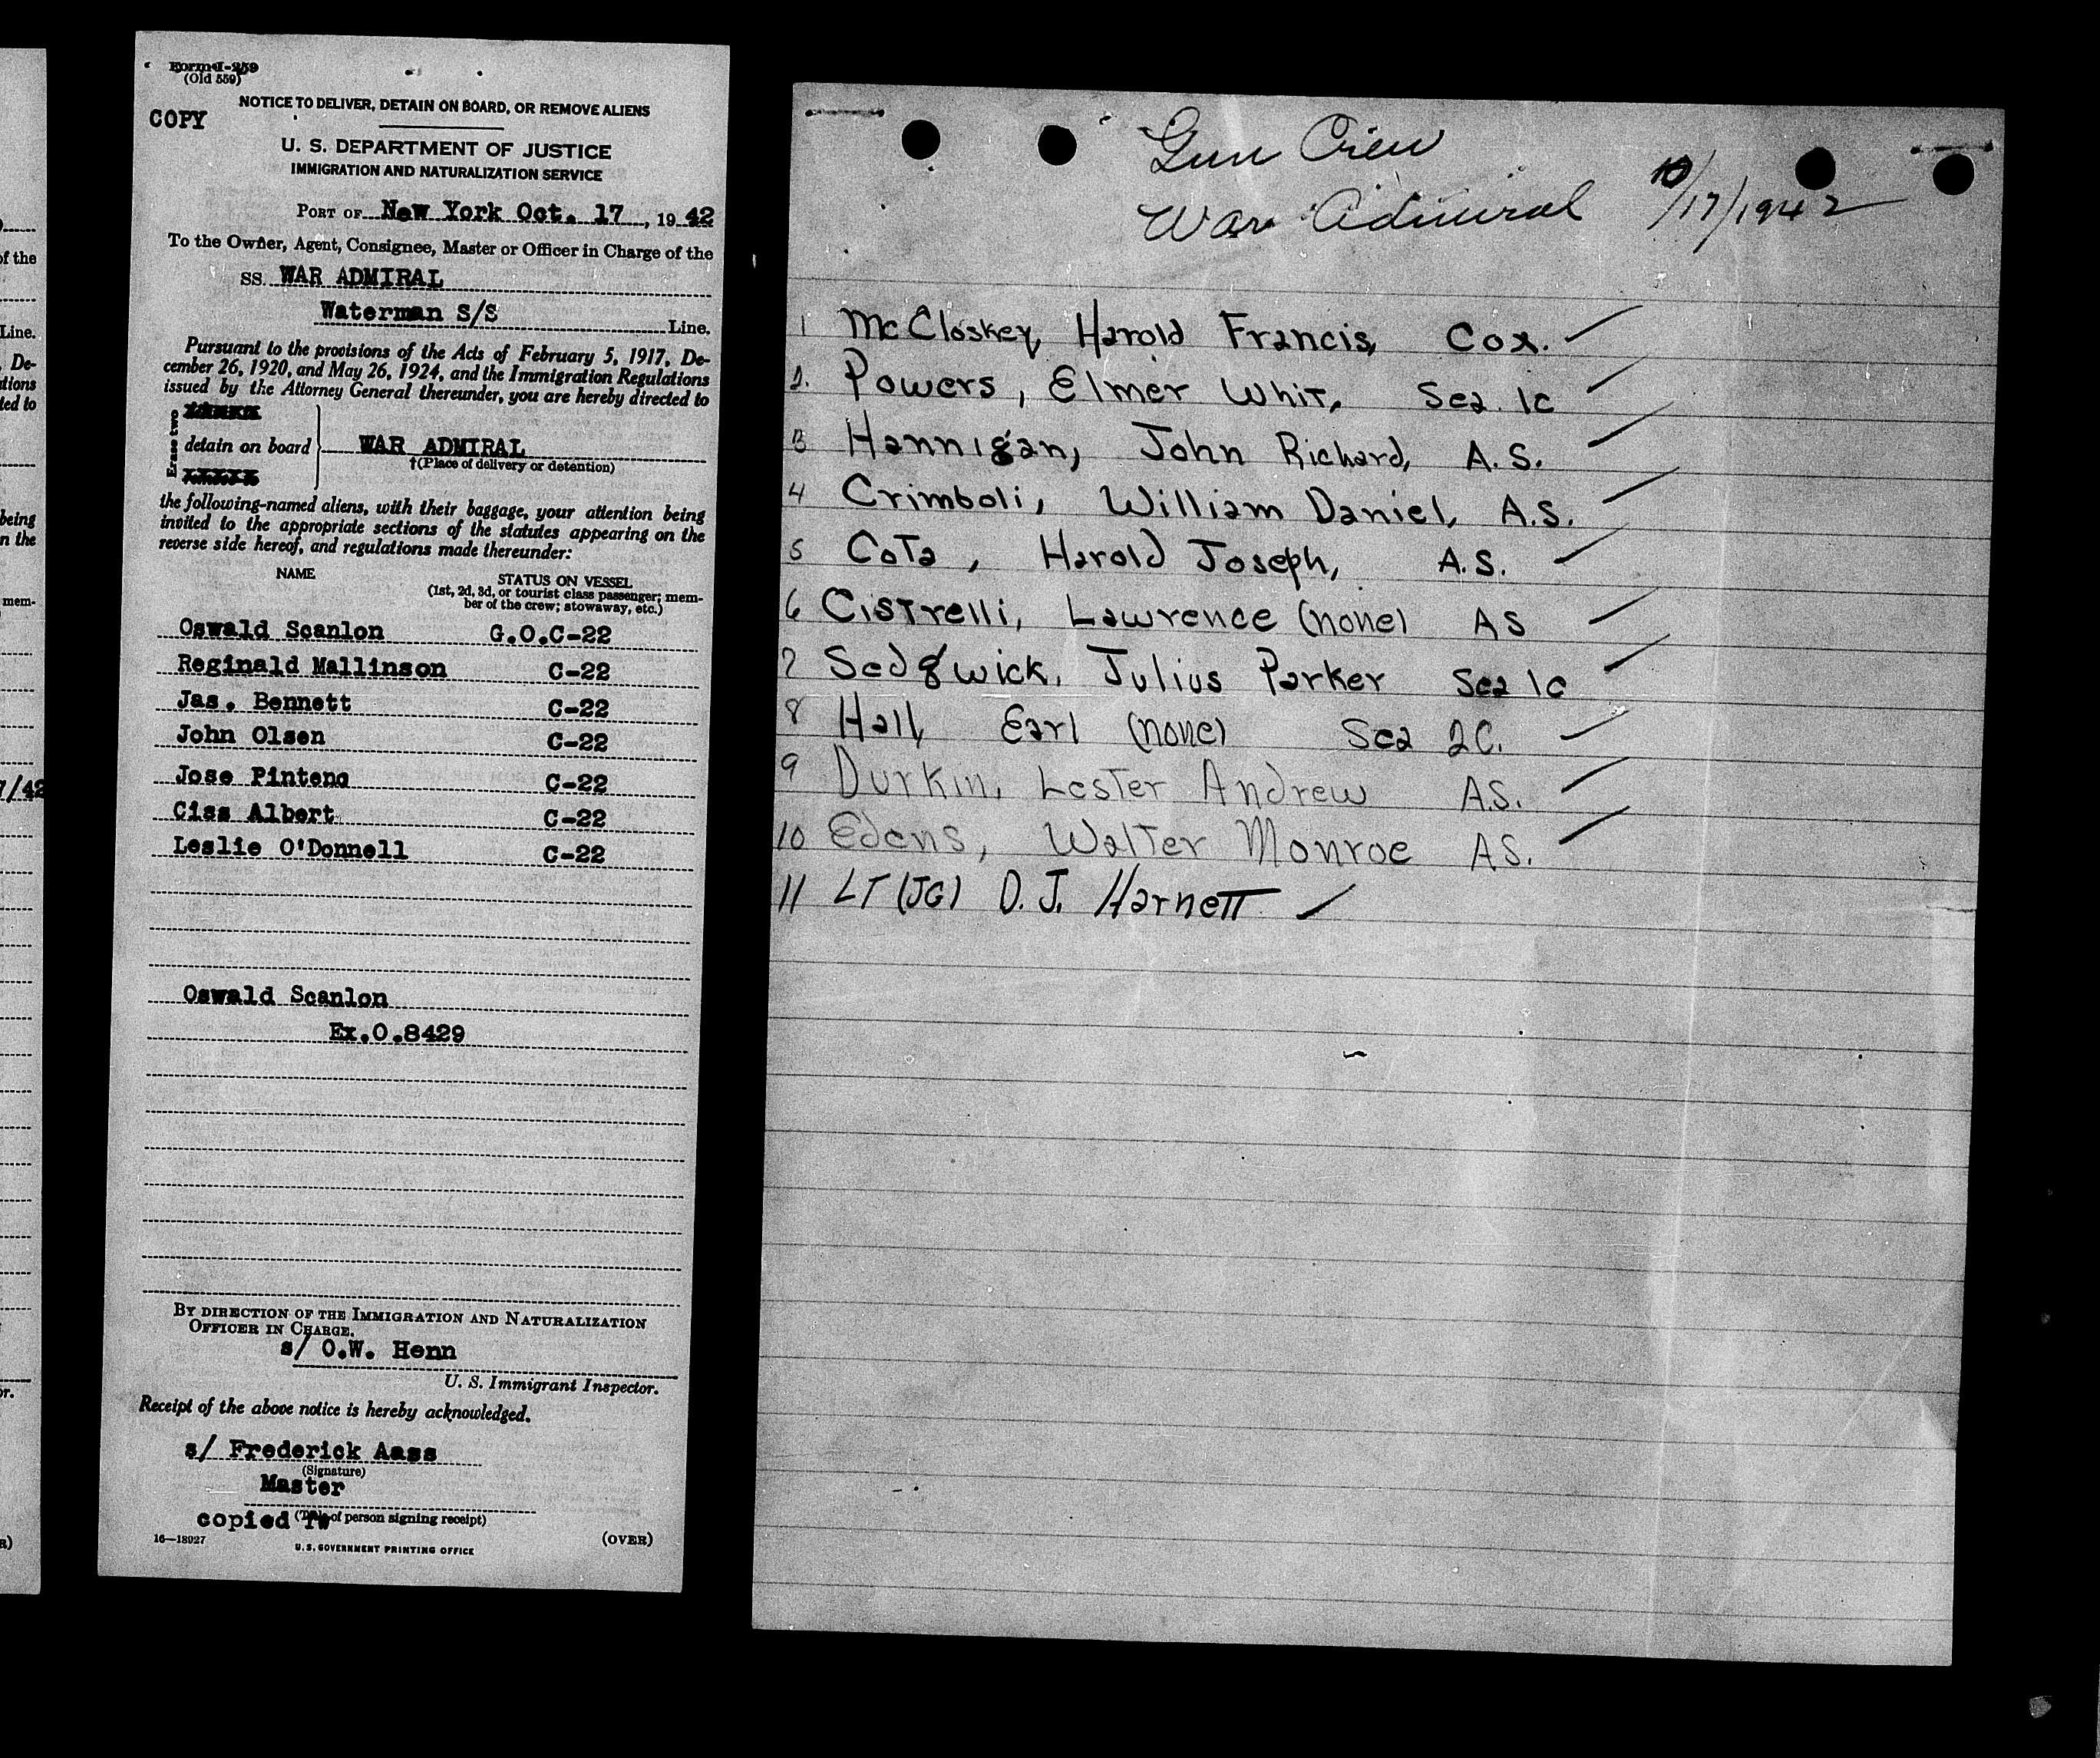 of the
Line.
, De-
tions
ted to
being
n the
mem-
7/42
or.
R)
Form I-259
(Old 559)
COPY
NOTICE TO DELIVER, DETAIN ON BOARD, OR REMOVE ALIENS
U. S. DEPARTMENT OF JUSTICE
IMMIGRATION AND NATURALIZATION SERVICE
PORT OF New York Oct. 17, 1942
To the Owner, Agent, Consignee, Master or Officer in Charge of the
SS. WAR ADMIRAL
Waterman S/S Line.
Pursuant to the provisions of the Acts of February 5, 1917, De-
cember 26, 1920, and May 26, 1924, and the Immigration Regulations
issued by the Attorney General thereunder, you are hereby directed to
Erase two
detain on board WAR ADMIRAL
†(Place of delivery or detention)
the following-named aliens, with their baggage, your attention being
invited to the appropriate sections of the statutes appearing on the
reverse side hereof, and regulations made thereunder:
NAME STATUS ON VESSEL
(1st, 2d, 3d, or tourist class passenger; mem-
ber of the crew; stowaway, etc.)
Oswald Scanlon G.O.C-22
Reginald Mallinson C-22
Jas. Bennett C-22
John Olsen C-22
Jose Pintena C-22
Ciss Albert C-22
Leslie O'Donnell C-22
Oswald Scanlon
Ex.O.8429
BY DIRECTION OF THE IMMIGRATION AND NATURALIZATION
OFFICER IN CHARGE.
s/ O.W. Henn
U. S. Immigrant Inspector.
Receipt of the above notice is hereby acknowledged.
s/ Frederick Aass
(Signature)
Master
copied (Title of person signing receipt)
16—18927 (OVER)
U. S. GOVERNMENT PRINTING OFFICE
Gun Crew
War Admiral 10/17/1942
1 McCloskey, Harold Francis, Cox.
2. Powers, Elmer Whit, Sea. 1c
3 Hannigan, John Richard, A.S.
4 Crimboli, William Daniel, A.S.
5 Cota, Harold Joseph, A.S.
6 Cistrelli, Lawrence (none) AS
7 Sedgwick, Julius Parker Sea 1c
8 Hall, Earl (none) Sea 2C.
9 Durkin, Lester Andrew A.S.
10 Edens, Walter Monroe AS.
11 LT (JG) D.J. Harnett